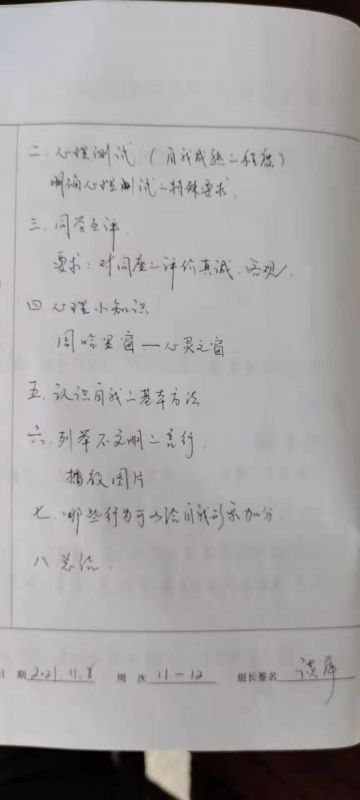 二、心理测试（自我成熟二程度）
明确心理测试二特殊要求.
三、同学互评.
要求：对同座二评价真诚、客观.
四 心理小知识
周哈里窗——心灵之窗
五、认识自我二基本方法
六、列举不文明二言行.
播放图片
七、哪些行为可以给自我形象加分
八、总结.
日 期 2021.11.8 周 次 11-12 组长签名